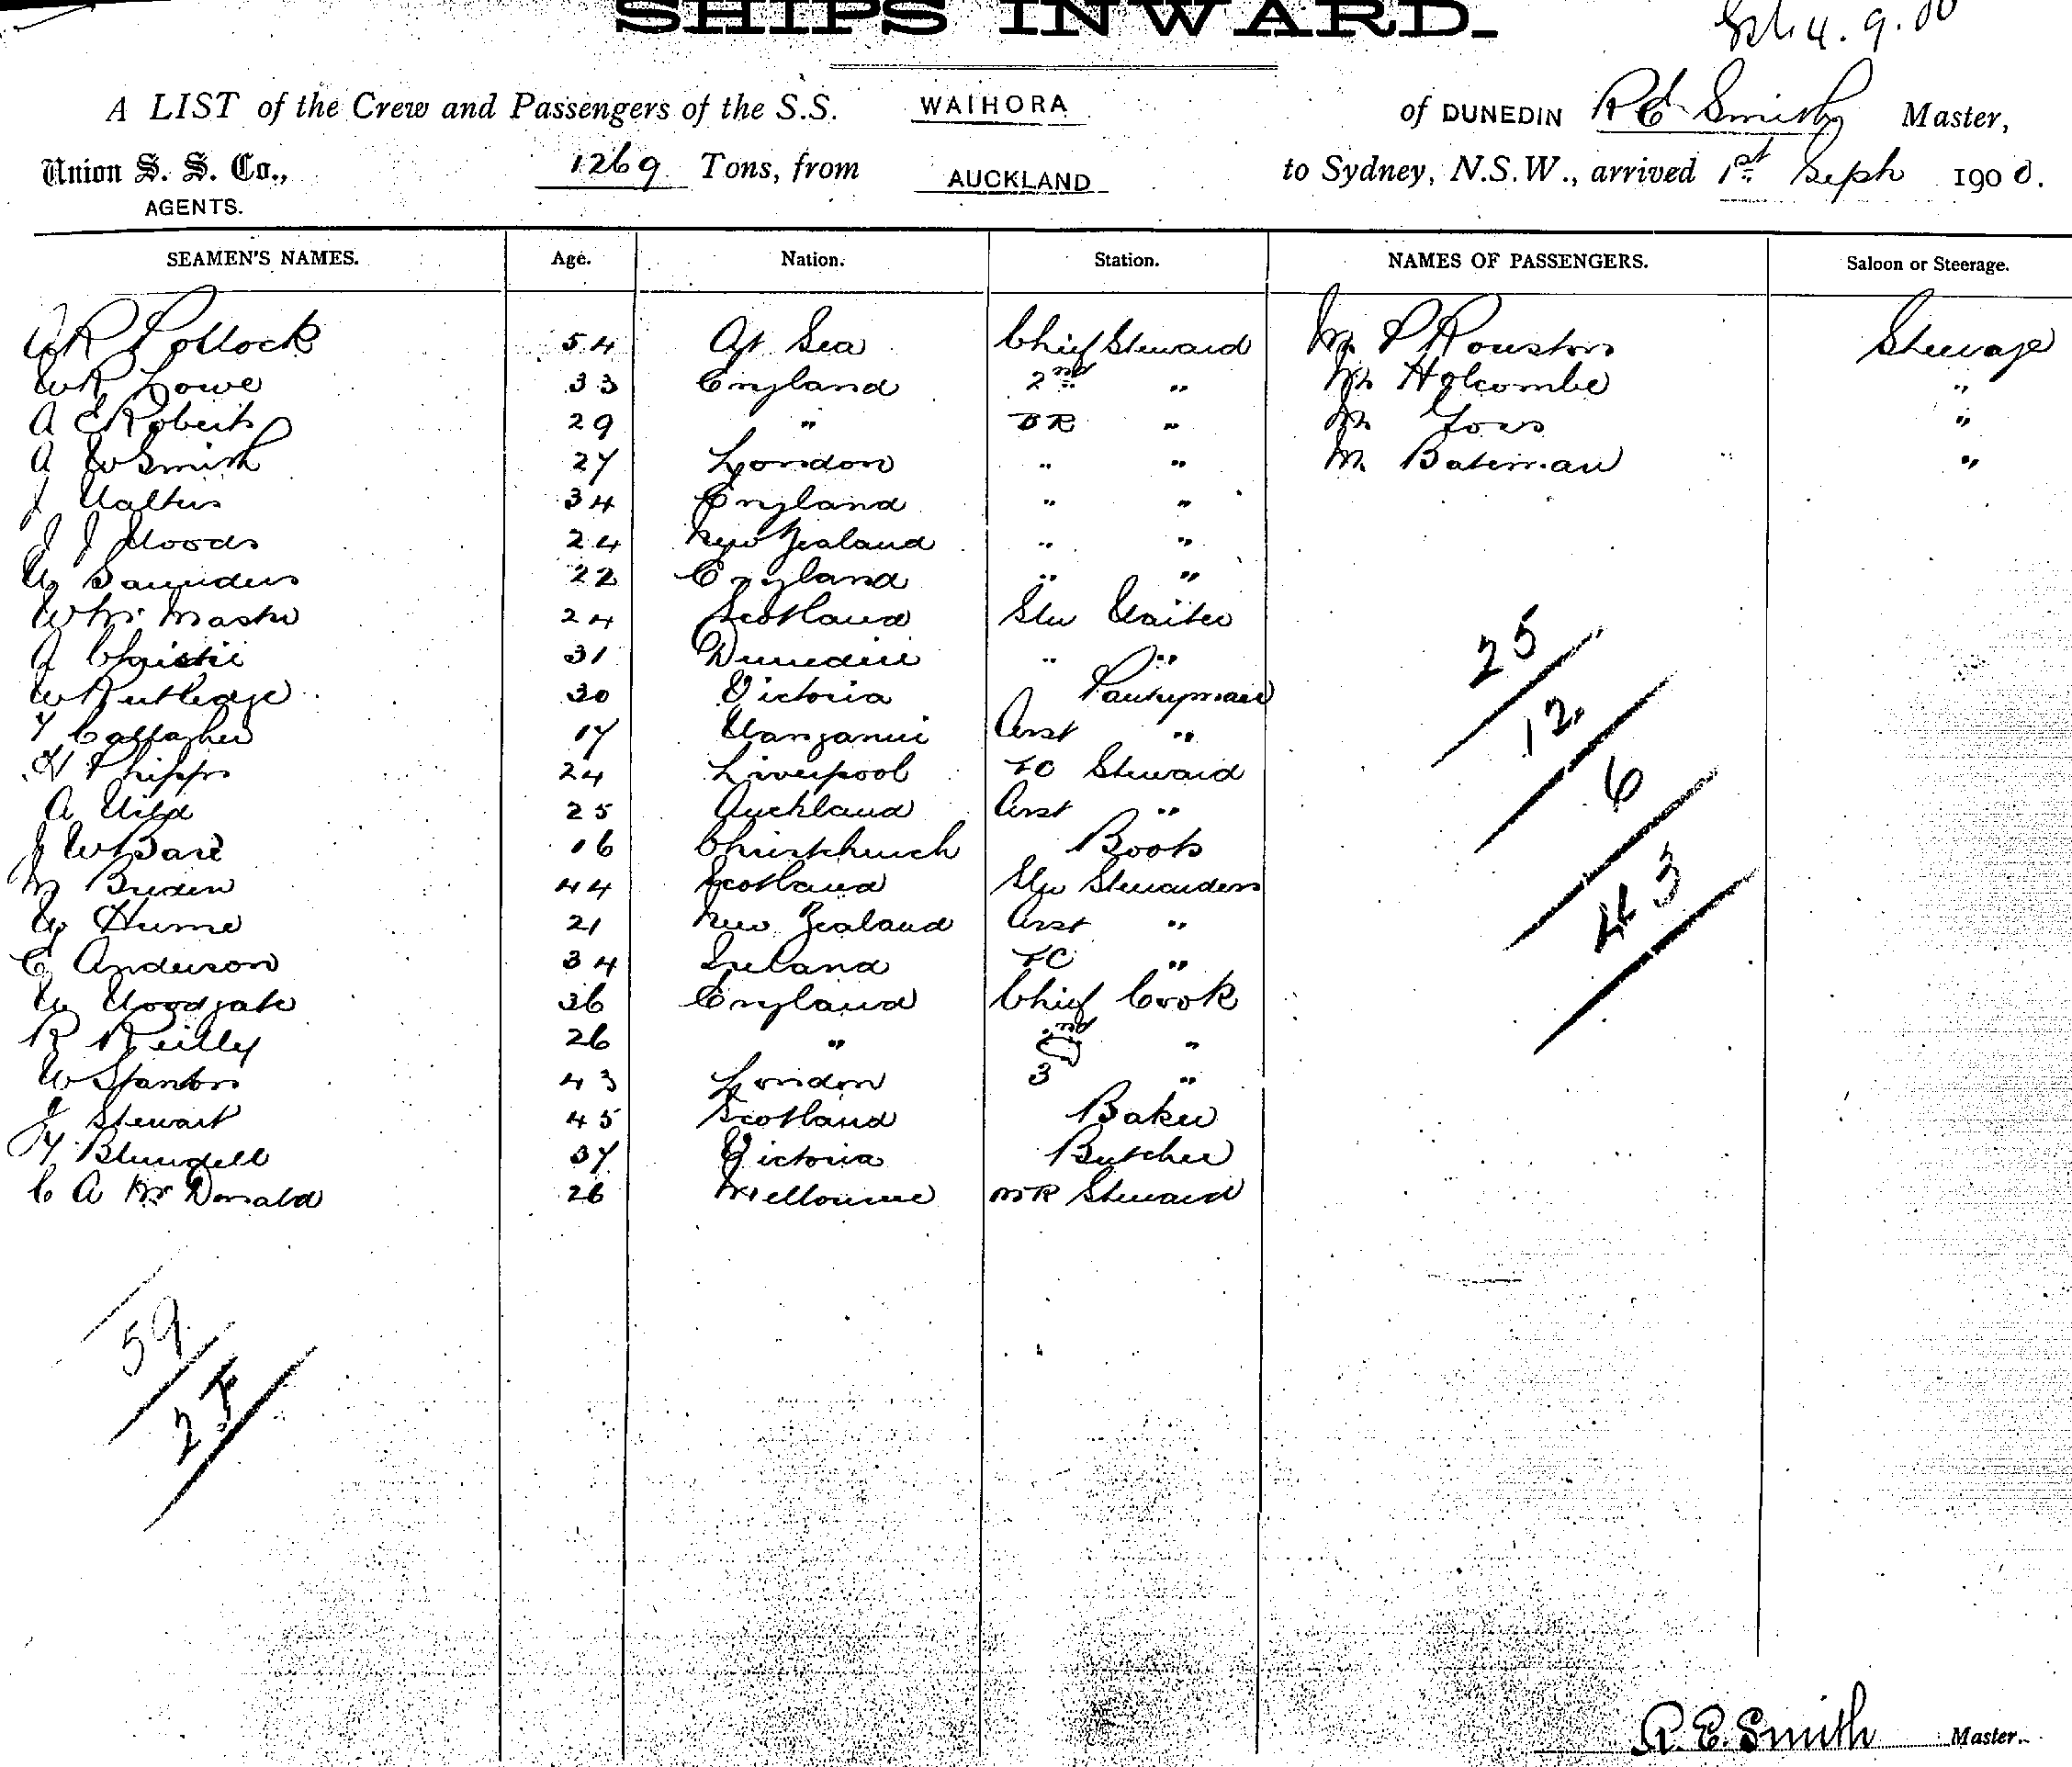 SHIPS INWARD.
4.9.00
A LIST of the Crew and Passengers of the S.S. WAIHORA of DUNEDIN R E Smith Master,
Union S. S. Co., AGENTS. 1269 Tons, from AUCKLAND to Sydney, N.S.W., arrived 1st Sept 1900.
SEAMEN'S NAMES. Age. Nation. Station. NAMES OF PASSENGERS. Saloon or Steerage.
R Pollock 54 At Sea Chief Steward Mr P Rouston Steerage
W R Lowe 33 England 2nd " Mr Holcombe "
A E Roberts 29 " BR " Mr "
A W Smith 27 London " " Mr Bateman "
J Walters 34 England " "
J J Woods 24 New Zealand " "
W Saunders 22 England " "
W McMaster 24 Scotland Stw Waiter
A Christie 31 Dunedin " "
W Rutledge 30 Victoria Pantryman
T Callagher 17 Wanganui Asst "
H Phipps 24 Liverpool FC Steward
A Wild 25 Auckland Asst "
J W Bare 16 Christchurch Boots
M Breden 44 Scotland Stw Stewardess
W Hume 21 New Zealand Asst "
C Anderson 34 Ireland FC "
W Woodgate 36 England Chief Cook
R Reilly 26 " 2nd "
W Stanton 43 London 3 "
J Stewart 45 Scotland Baker
T Blundell 37 Victoria Butcher
C A McDonald 26 Melbourne MR Steward
25
12
6
43
59
R. E. Smith Master.